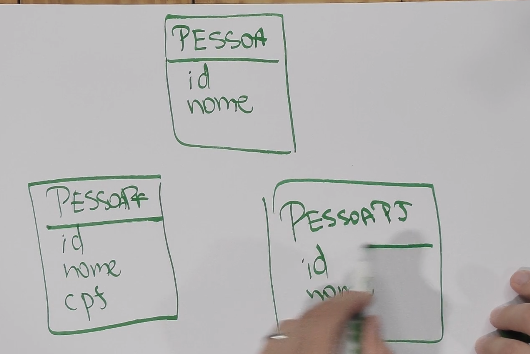 PESSOA
id
nome
PESSOAPF
id
nome
cpf
PESSOAPJ
id